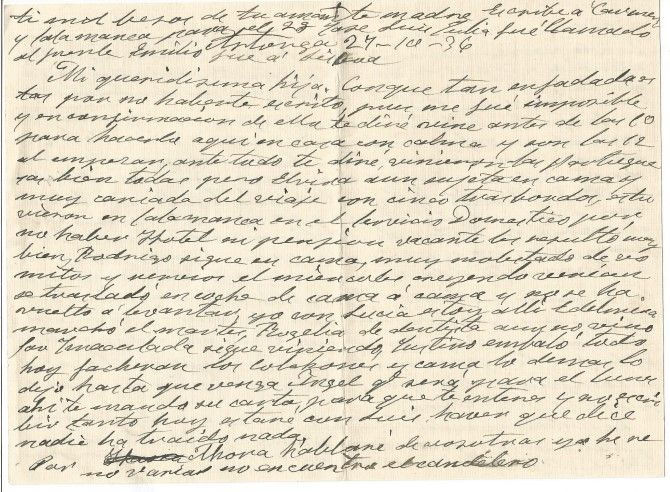 ti mil besos de tu amante madre Escribe a
y Salamanca para el 23 José Luis Julia fue llamado
al frente Emilio fue á
Astorga 27-10-36
Mi queridisima hija. Conque tan enfadada es
tas por no haberte escrito, pues me fué imposible
y en confirmacion de ella te diré vine antes de las 10
para hacerla aqui en casa con calma y son las 12
al empezar, ante todo te diré, vinieron las portugue
sas bien todas pero Elvira aun sujeta en cama y
muy cansada del viaje con cinco trasbordos, estu
vieron en Salamanca en el Servicio Domestico por
no haber Hotel ni pension vacante les resultó muy
bien, Rodrigo sigue en cama, muy molestado de vo
mitos y nervios el miercoles creyendo venian
se trasladó en coche de cama á cama y no se ha
vuelto a levantar, yo con Lucia estoy alli Edelmira
marchó el martes, Rogelia de dentista aun no vino
Inmaculada sigue viviendo, Justino embaló todo
hoy los colchones y cama lo demas lo
dejo hasta que venga Angel q. sera para el lunes
ahi te mando su carta para que te enteres y no escri
bir tanto hoy estare con Luis haver que dice
nadie ha traido nada
Ahora hablaré de vosotras ya he re
Por no variar no encuentro el candelero